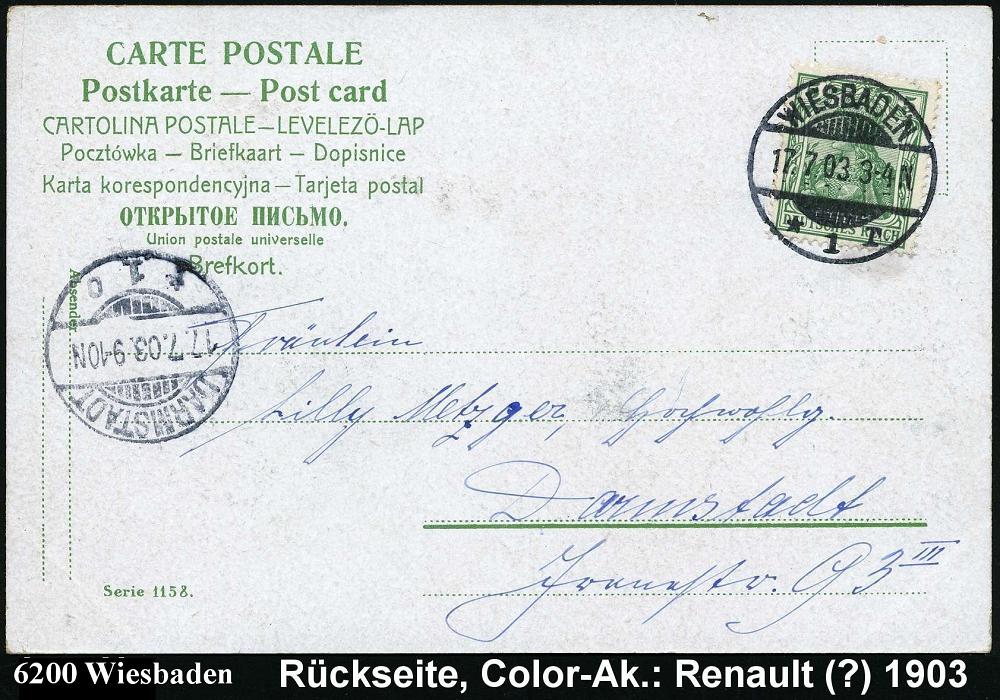 CARTE POSTALE
Postkarte — Post card
CARTOLINA POSTALE — LEVELEZÖ-LAP
Pocztówka — Briefkaart — Dopisnice
Karta korespondencyjna — Tarjeta postal
ОТКРЫТОЕ ПИСЬМО.
Union postale universelle
Brefkort.
WIESBADEN
17.7.03.3-4N
* 1 L
DEUTSCHES REICH
Absender
DARMSTADT
17.7.03.9-10N
* 1 o
Fräulein
Lilly Metzger, Hochwohlg.
Darmstadt
93 III
Serie 1158.
6200 Wiesbaden
Rückseite, Color-Ak.: Renault (?) 1903